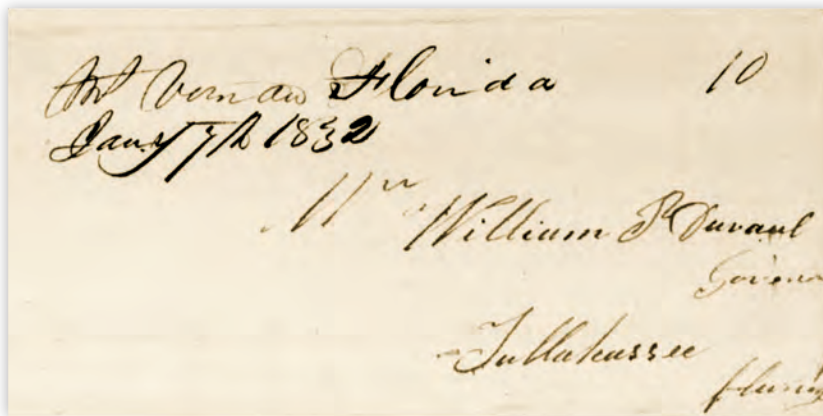 Mt Vernon Florida 10
Jany 7th 1832
Mr William P Duvaul
Govenor
Tallahassee